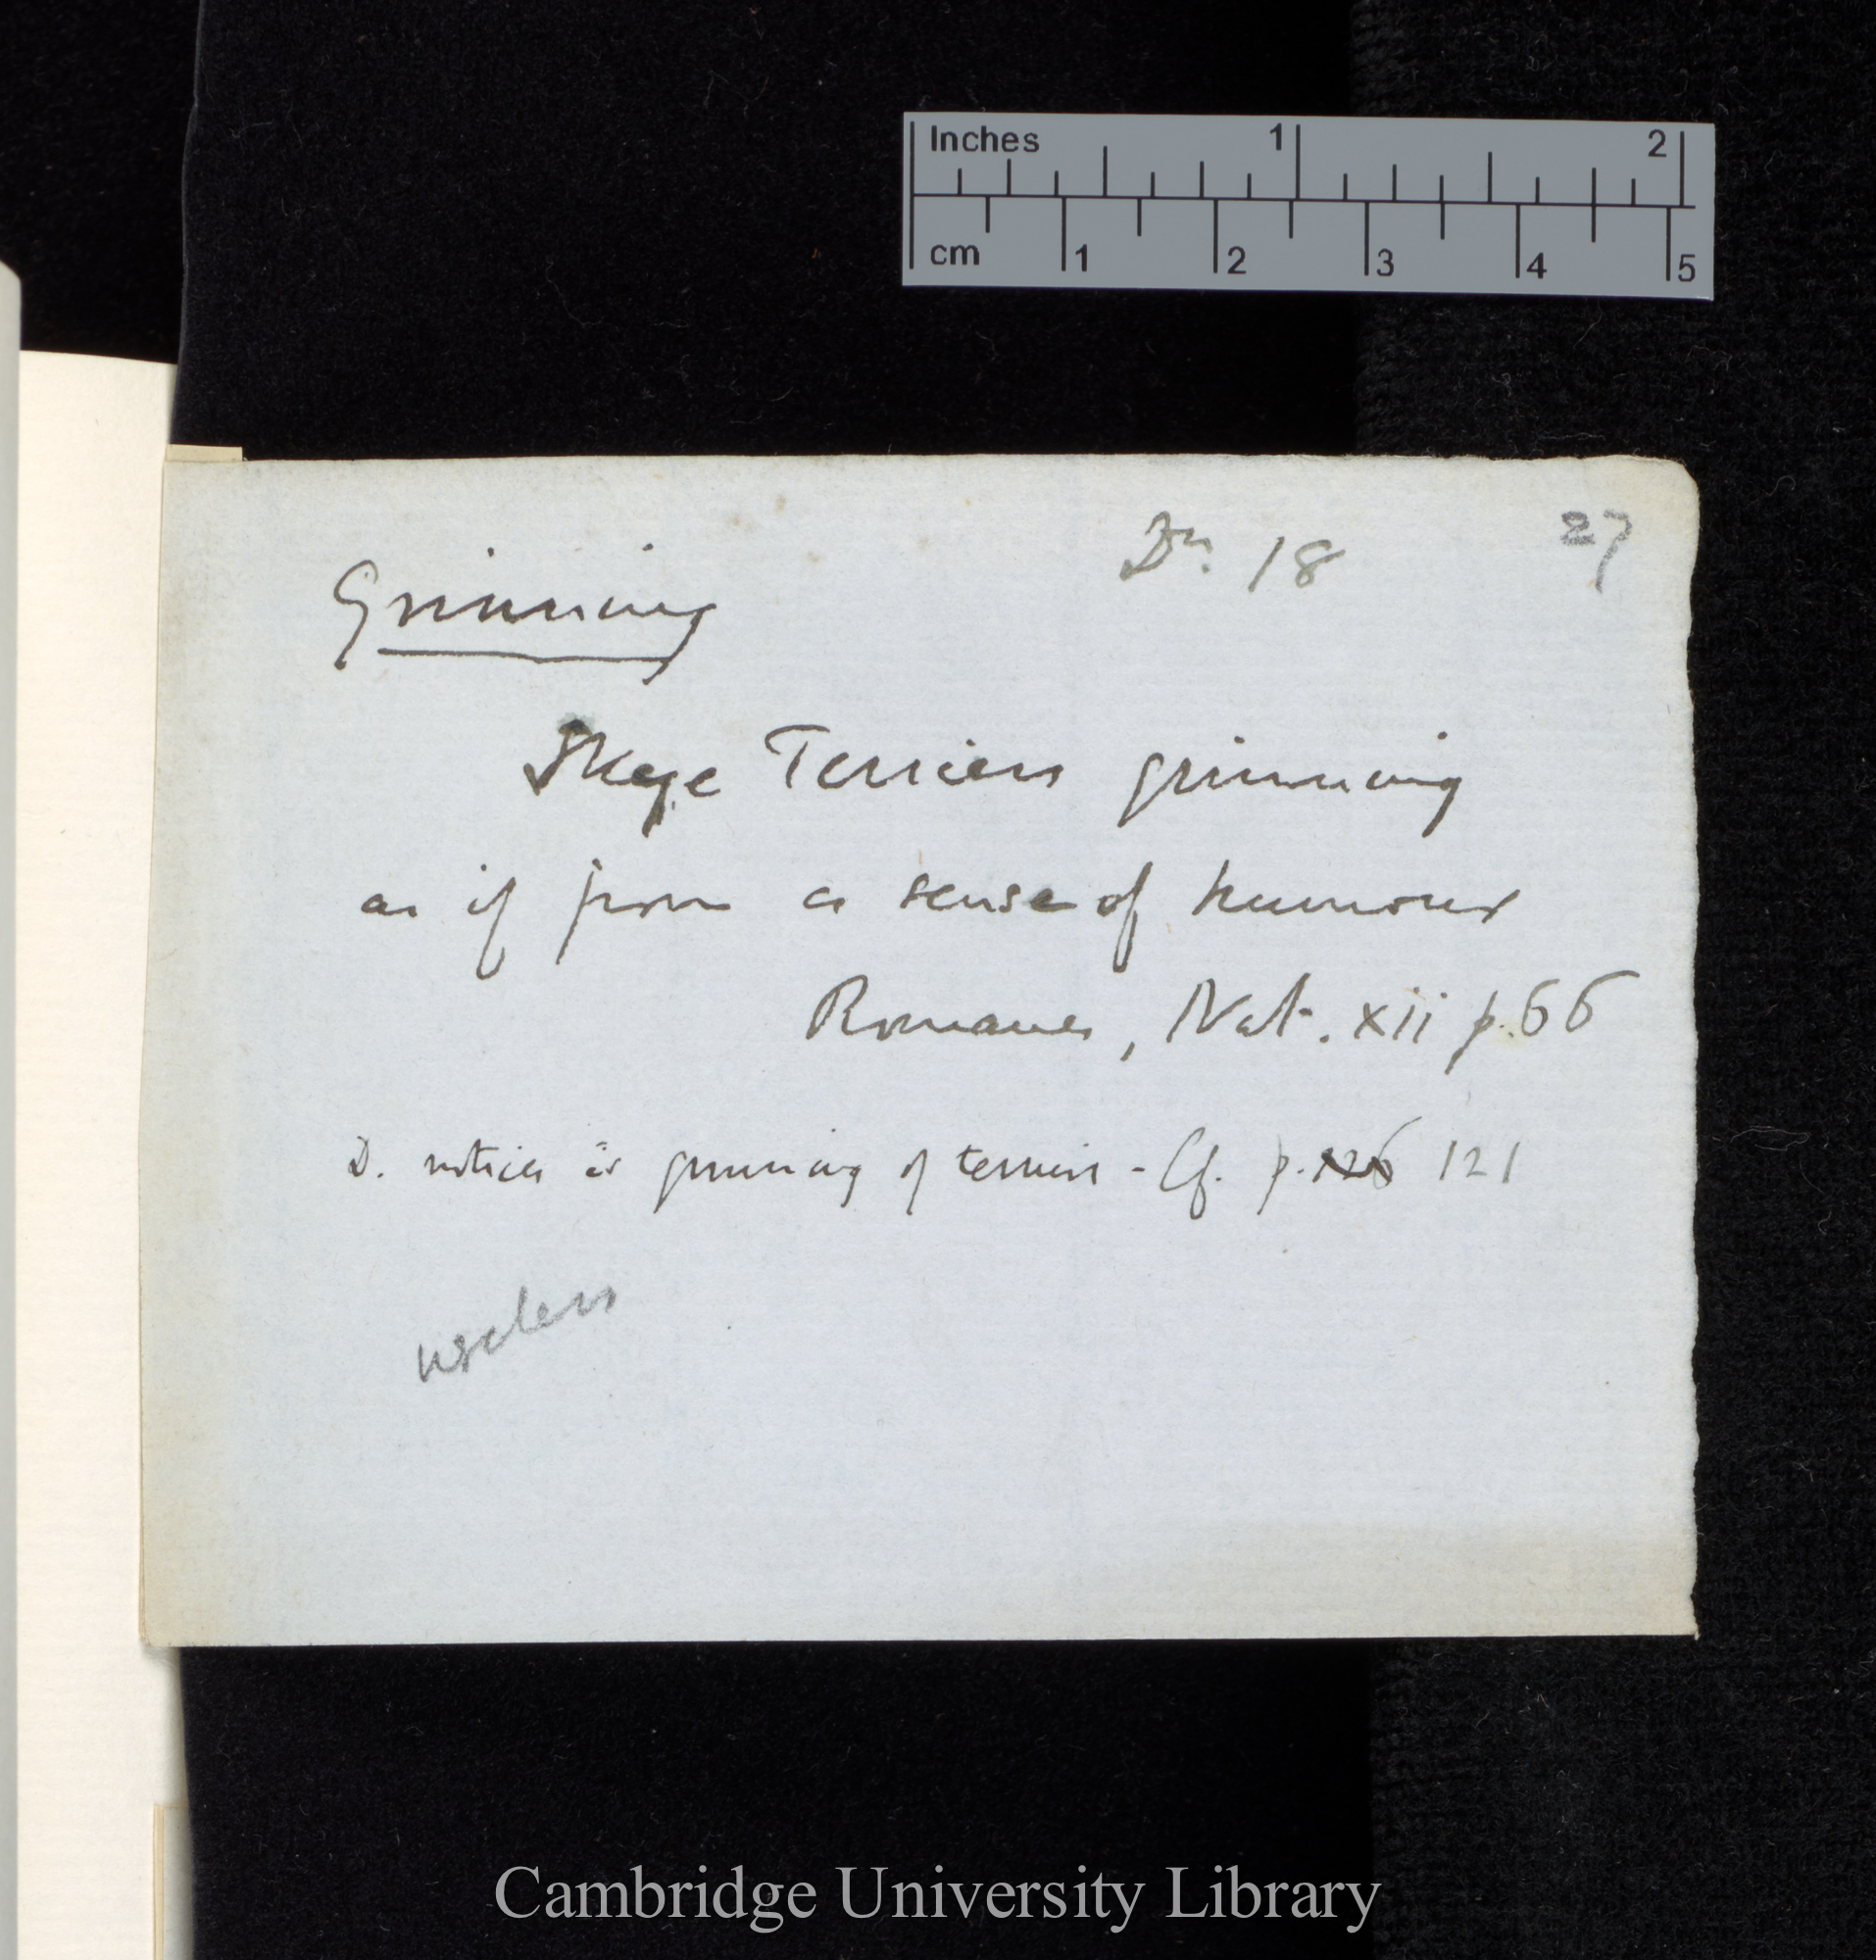 Inches 1 2
cm 1 2 3 4 5
Dn. 18 27
Grinning
Skye Terriers grinning
as if from a sense of humour
Romanes, Nat. xii p. 66
D. notices grinning of terriers - Cf. p. 126 121
useless
Cambridge University Library